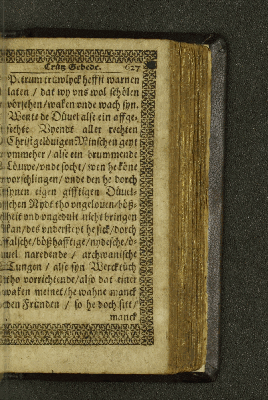 Crütz Gebede. 627
Petrum truwlyck hefft warnen
laten / dat wy vns wol schölen
vörsehen / waken vnde wach syn.
Wente de Düuel alse ein affge-
sechte Vyendt aller rechten
Christgelöuigen Minschen geyt
vmmeher / alse ein brummende
Löuwe / vnde socht / wen he köne
vorschlingen / vnde den he dorch
synen eigen gifftigen Düuel-
schen Nydt tho vngelouen / böß-
heit vnd vngedult nicht bringen
kan / des vndersteyt he sick / dorch
falsche / bößhafftige / nydesche / ö-
uel naredende / archwanische
Tungen / alse syn Werckrüch
tho vorrichtende / also dat einer
waken meinet / he wahne manck
den Fründen / so he doch sitt /
manck